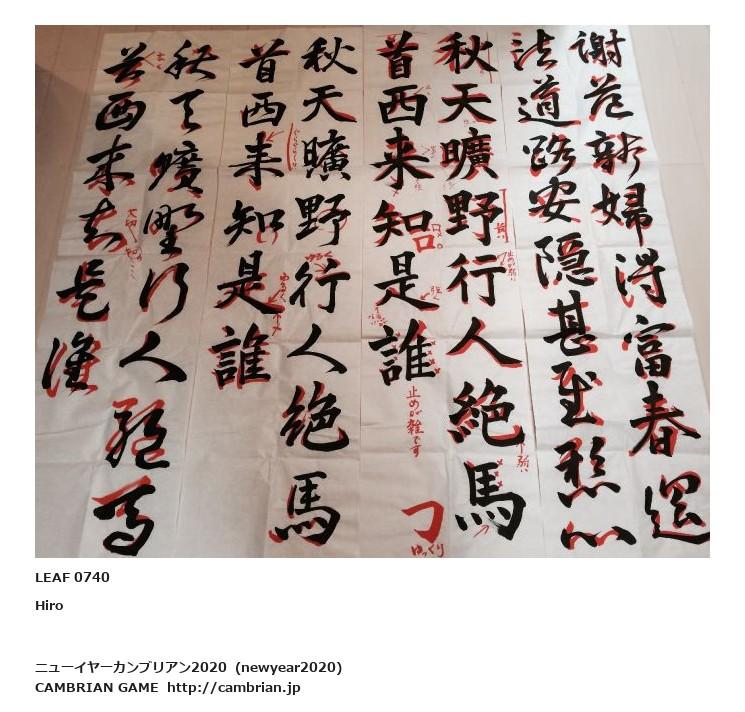 謝范新婦得富春還
法道路安隠甚至慰心
秋天曠野行人絶馬
首西来知是誰
止めが雑です
ゆっくり
秋天曠野行人絶馬
首西来知是誰
ゆるく
秋天曠野行人絶馬
首西来知是誰
大切
LEAF 0740
Hiro
ニューイヤーカンブリアン2020 (newyear2020)
CAMBRIAN GAME http://cambrian.jp